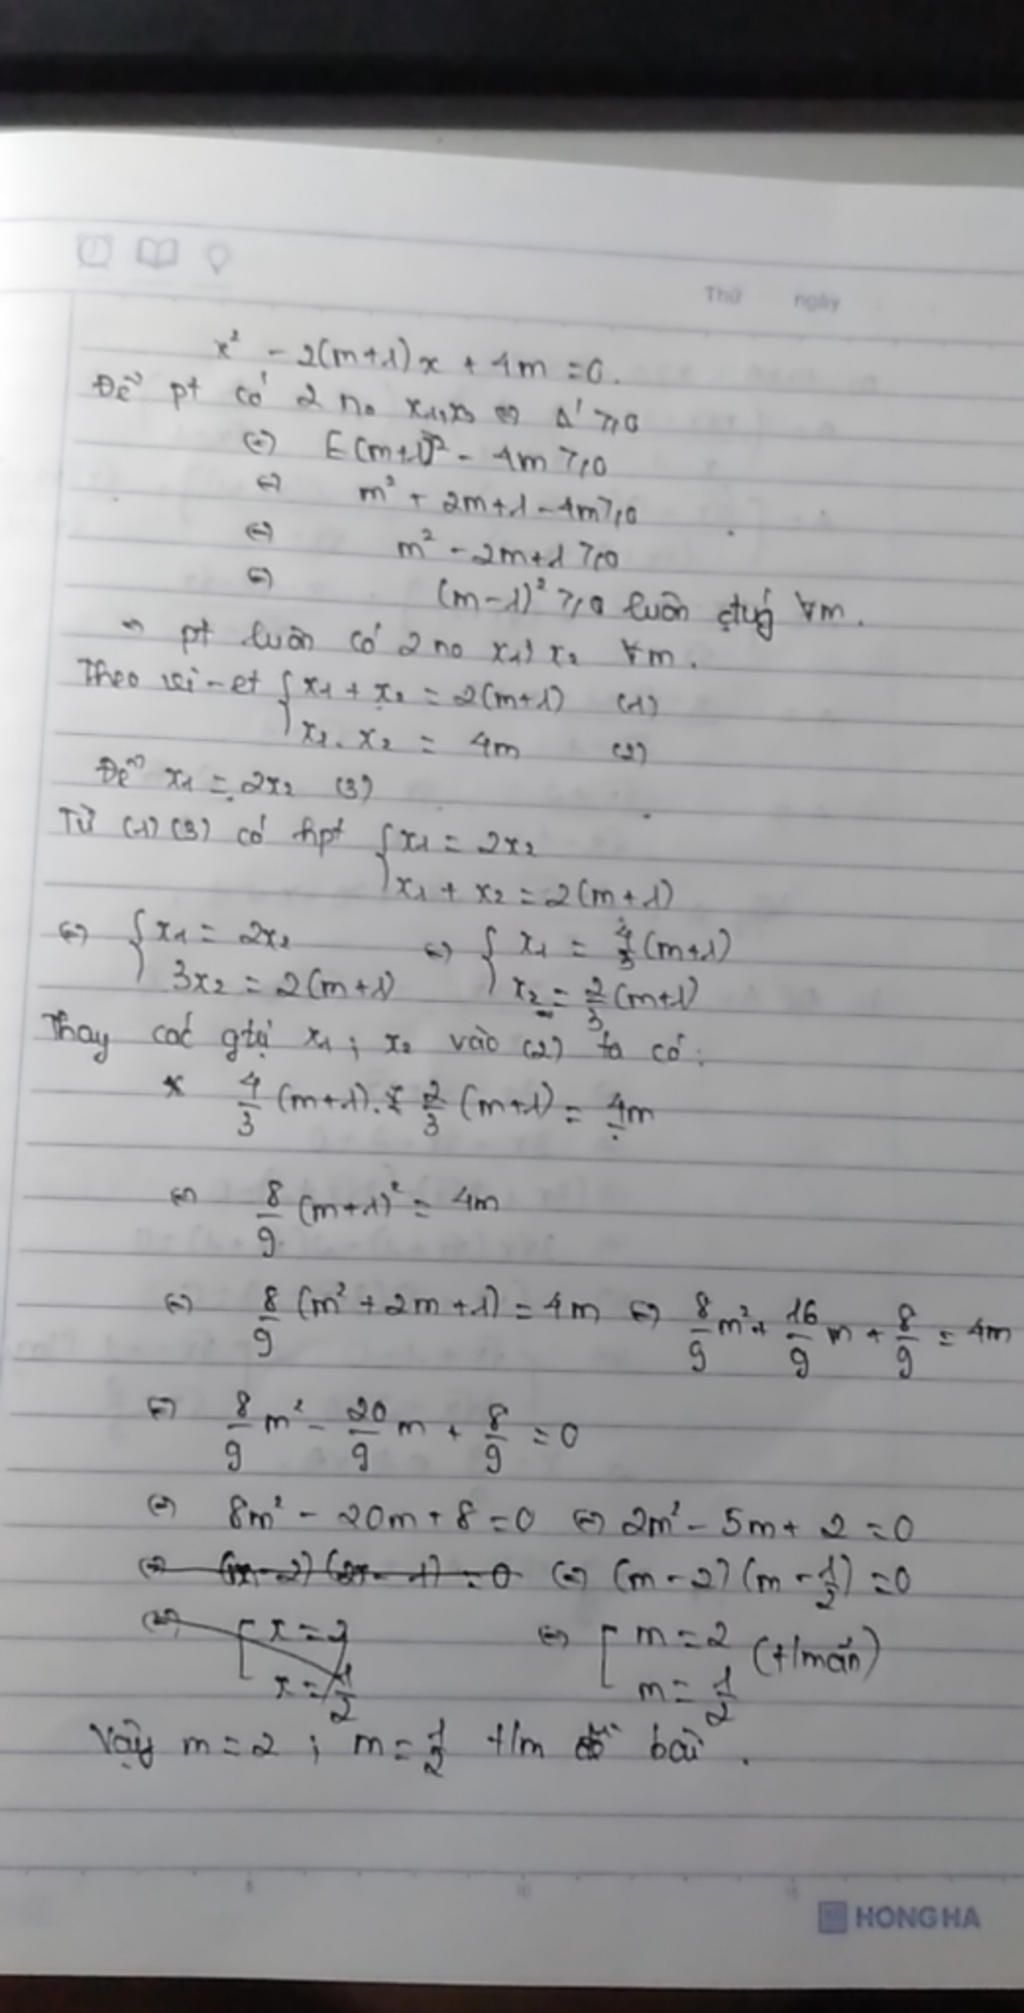 Thứ ngày
x² - 2(m+1)x + 4m = 0.
Để pt có 2 no x₁,x₂ ⇔ Δ' ≥ 0
⇔ [-(m+1)]² - 4m ≥ 0
⇔ m² + 2m + 1 - 4m ≥ 0
⇔ m² - 2m + 1 ≥ 0
⇔ (m-1)² ≥ 0 luôn đúng ∀m.
⇒ pt luôn có 2 no x₁, x₂ ∀m.
Theo vi-et { x₁ + x₂ = 2(m+1) (1)
x₁. x₂ = 4m (2)
Để x₁ = 2x₂ (3)
Từ (1) (3) có hpt { x₁ = 2x₂
x₁ + x₂ = 2(m+1)
⇔ { x₁ = 2x₂ ⇔ { x₁ = 4/3 (m+1)
3x₂ = 2(m+1) x₂ = 2/3 (m+1)
Thay các gtrị x₁ ; x₂ vào (2) ta có :
* 4/3 (m+1). 2/3 (m+1) = 4m
⇔ 8/9 (m+1)² = 4m
⇔ 8/9 (m² + 2m + 1) = 4m ⇔ 8/9 m² + 16/9 m + 8/9 = 4m
⇔ 8/9 m² - 20/9 m + 8/9 = 0
⇔ 8m² - 20m + 8 = 0 ⇔ 2m² - 5m + 2 = 0
⇔ (x-2)(2x-1) = 0 ⇔ (m-2)(m-1/2) = 0
⇔ [ x = 2 ⇔ [ m = 2 (t/mãn)
x = 1/2 m = 1/2
Vậy m = 2 ; m = 1/2 t/m đề bài .
HONG HA